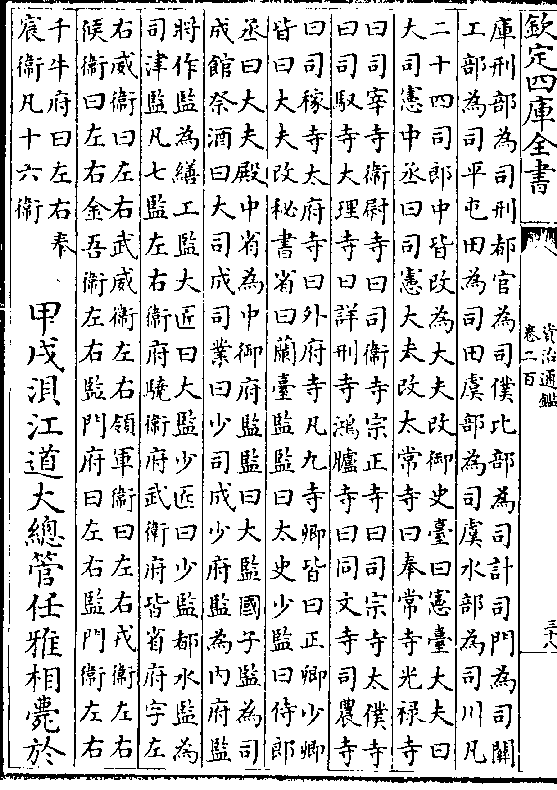 欽定四庫全書
資治通鑑
卷二百
三十八
庫刑部為司刑都官為司僕比部為司計司門為司關
工部為司平屯田為司田虞部為司虞水部為司川凡
二十四司郎中皆改為大夫改御史臺曰憲臺大夫曰
大司憲中丞曰司憲大夫改太常寺曰奉常寺光禄寺
曰司宰寺衛尉寺曰司衛寺宗正寺曰司宗寺太僕寺
曰司馭寺大理寺曰詳刑寺鴻臚寺曰同文寺司農寺
曰司稼寺太府寺曰外府寺凡九寺卿皆曰正卿少卿
皆曰大夫改秘書省曰蘭臺監監曰太史少監曰侍郎
丞曰大夫殿中省為中御府監監曰大監國子監為司
成館祭酒曰大司成司業曰少司成少府監為内府監
將作監為繕工監大匠曰大監少匠曰少監都水監為
司津監凡七監左右衛府驍衛府武衛府皆省府字左
右威衛曰左右武威衛左右領軍衛曰左右戎衛左右
候衛曰左右金吾衛左右監門府曰左右監門衛左右
千牛府曰左右奉
宸衛凡十六衛
甲戌浿江道大總管任雅相薨於